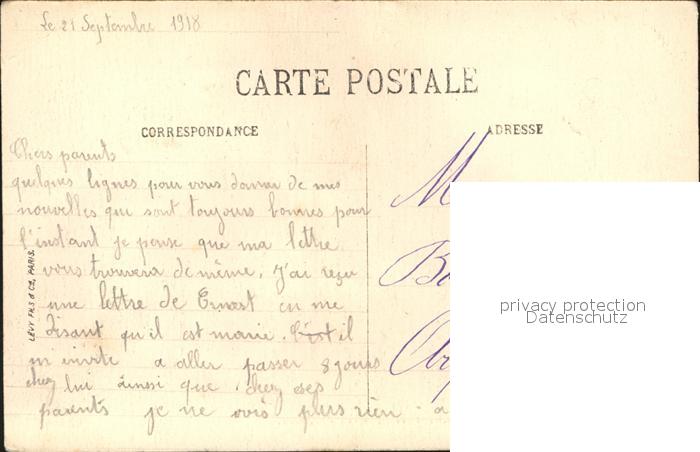 Le 21 Septembre 1918
CARTE POSTALE
CORRESPONDANCE
ADRESSE
Chers parents
quelques lignes pour vous donner de mes
nouvelles qui sont toujours bonnes pour
l'instant je pense que ma lettre
vous trouvera de même. J'ai reçu
une lettre de Ernest en me
disant qu'il est marié. il
m invite a aller passer 8 jours
chez lui ainsi que chez ses
parents je ne vois plus rien a
LÉVY FILS & Cie, PARIS.
M
privacy protection
Datenschutz